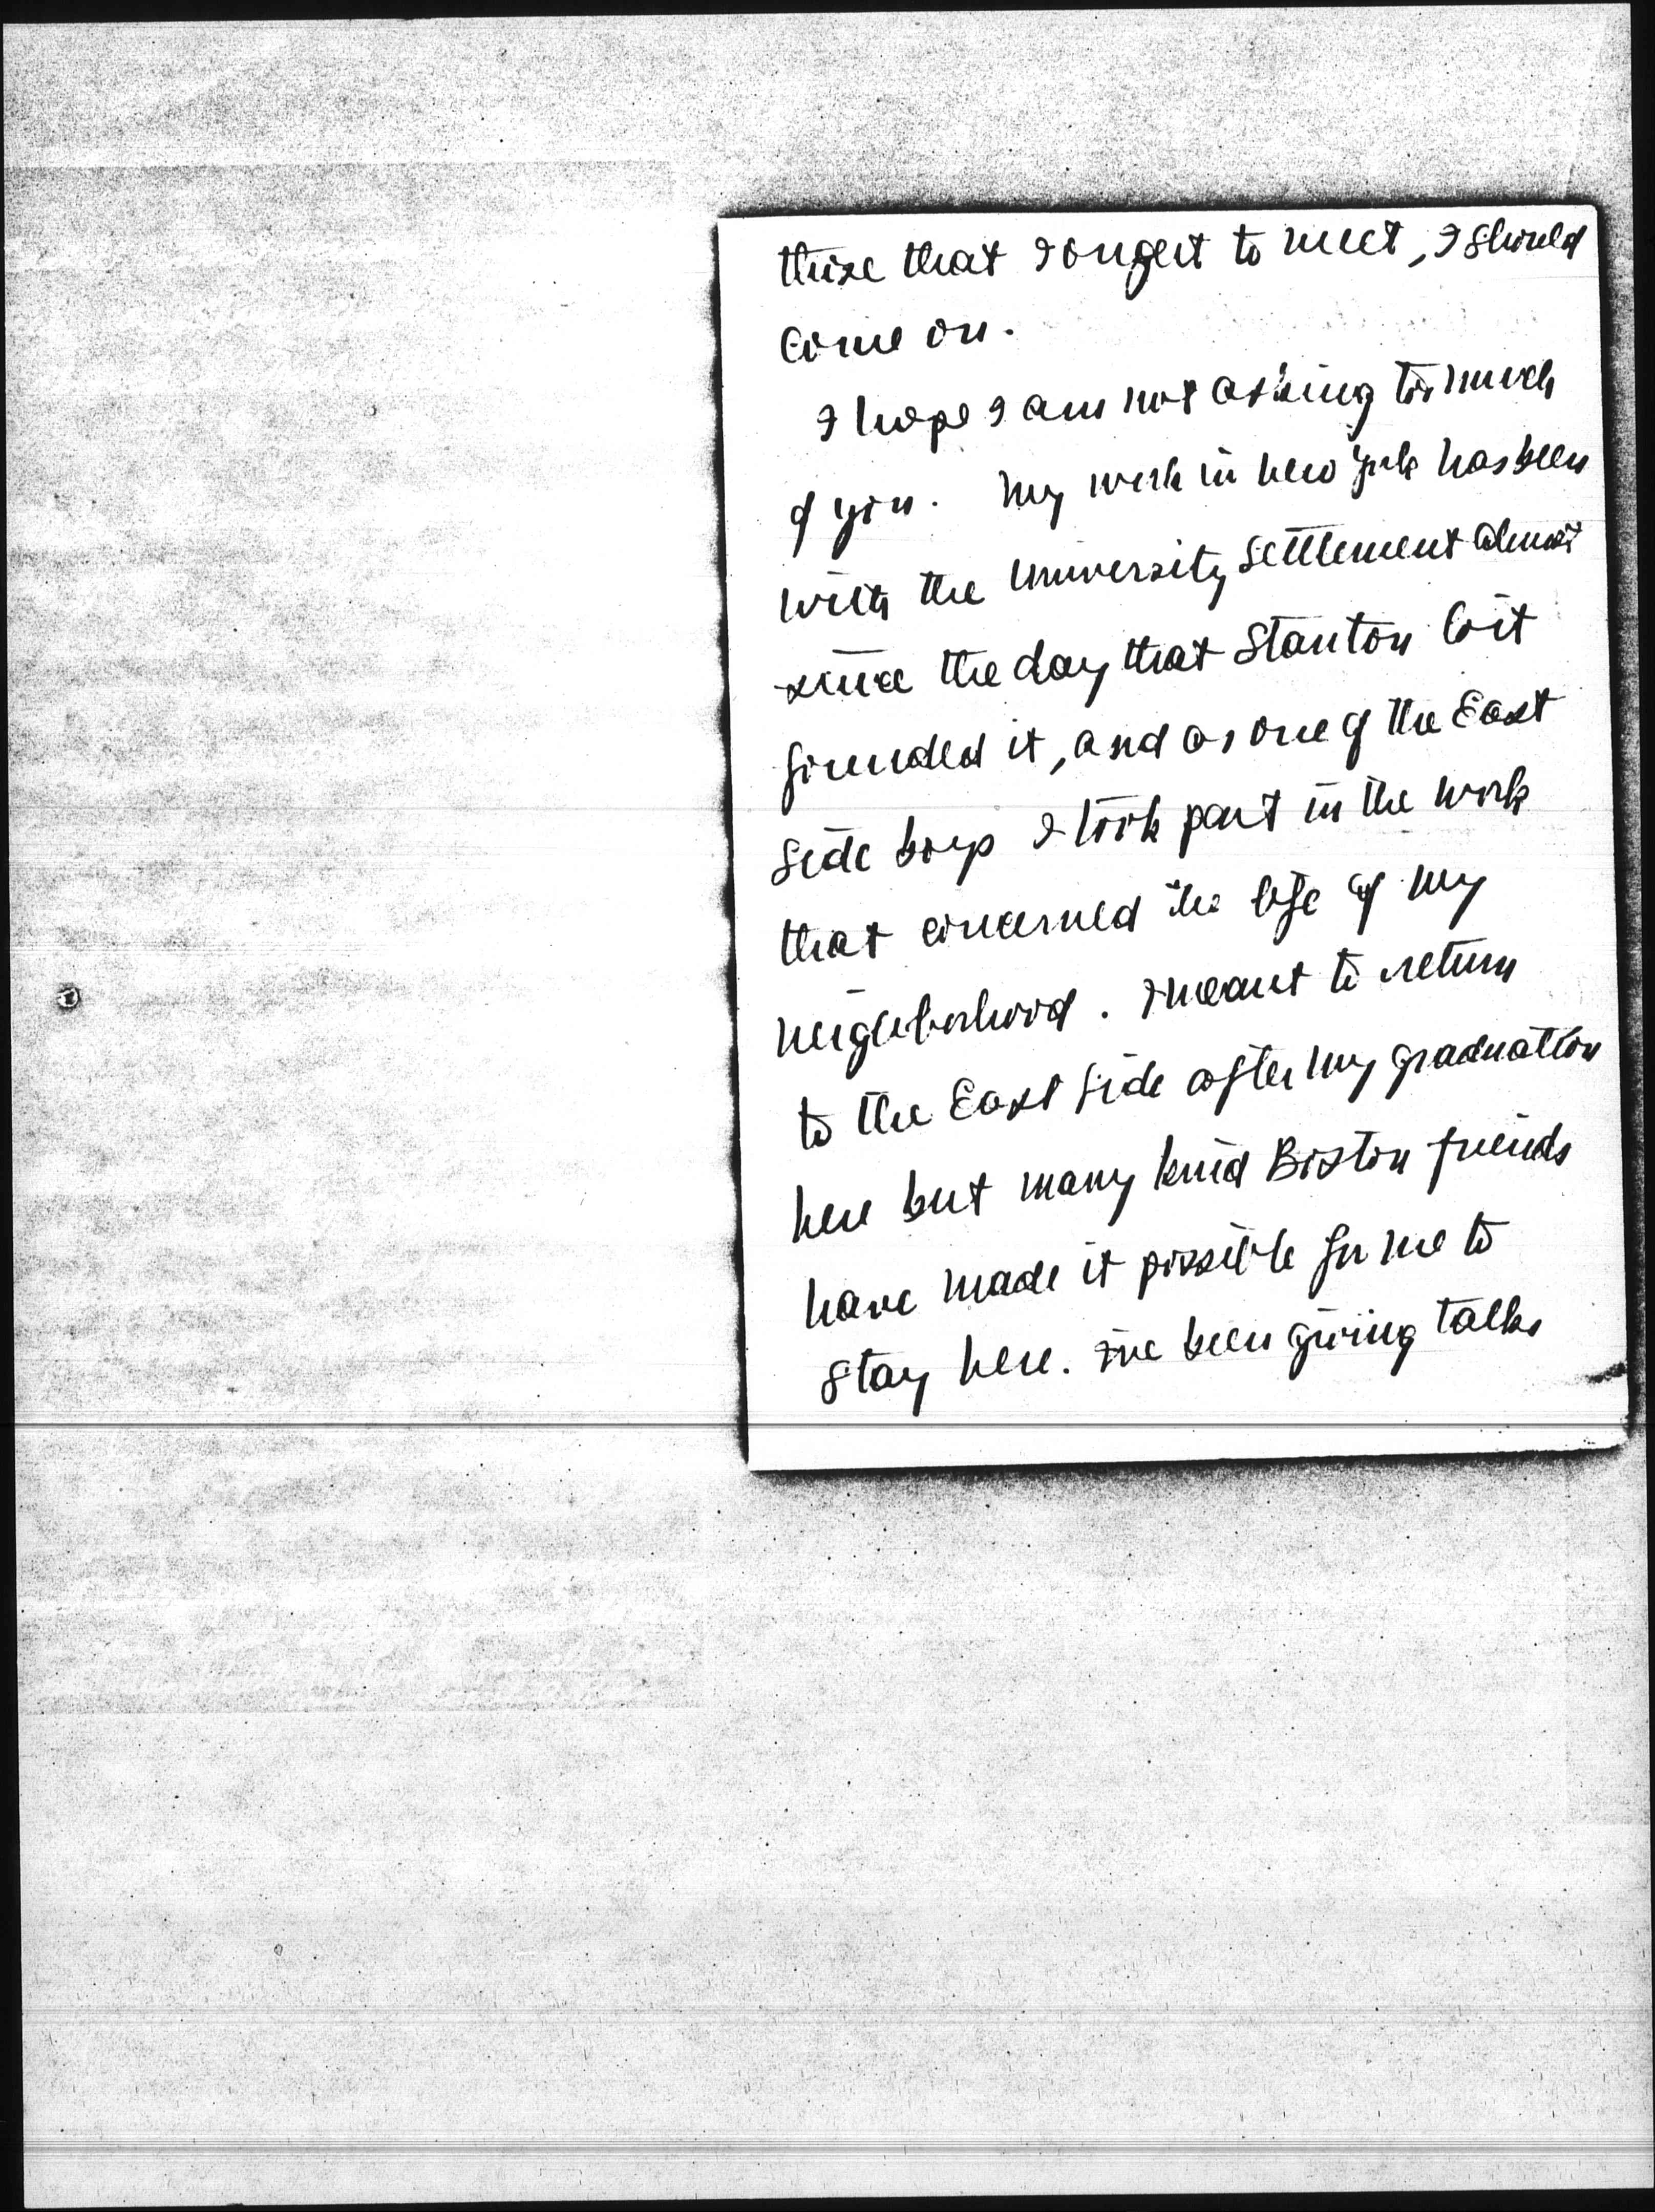 those that I ought to meet, I should
come on.
I hope I am not asking too much
of you. My work in New York has been
with the University Settlement almost
since the day that Stanton Coit
founded it, and as one of the East
Side boys I took part in the work
that concerned the life of my
neighborhood. I meant to return
to the East Side after my graduation
here but many kind Boston friends
have made it possible for me to
stay here. I've been giving talks